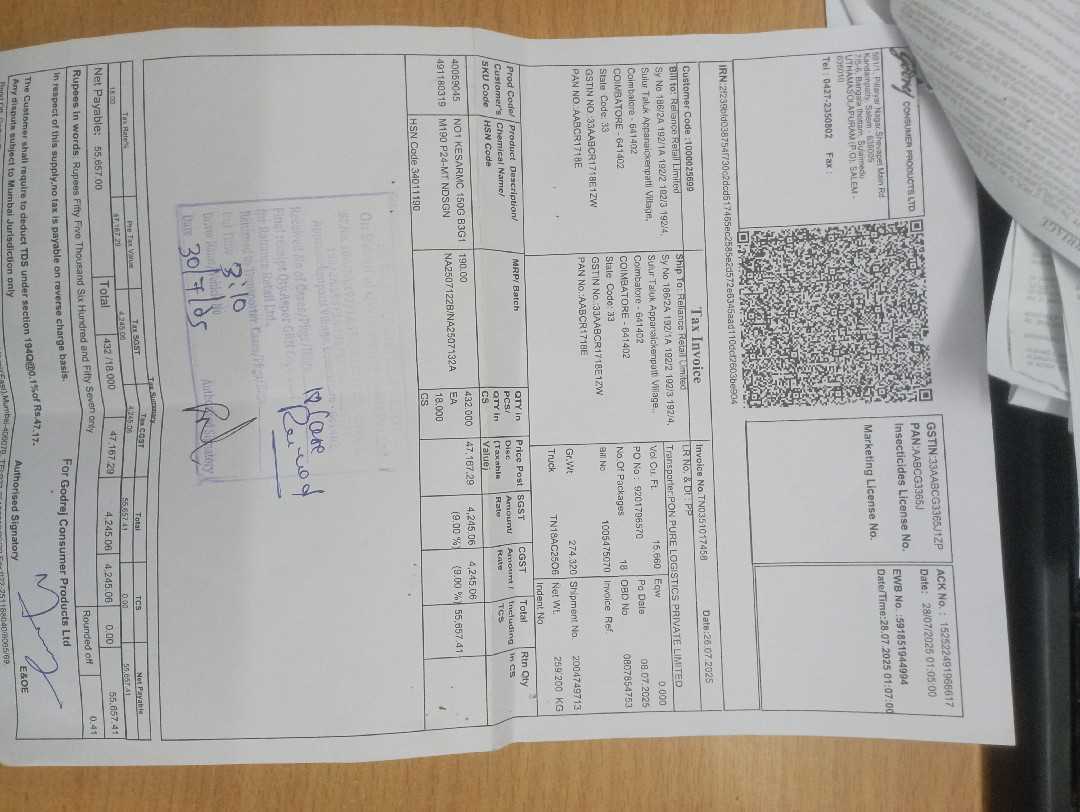 Godrej CONSUMER PRODUCTS LTD
591/1, Pillaiyar Nagar, Shevapet Main Rd
Kandampatty, Salem - 636005
7/5-6, Bangala thottam, Sulaimedu
UTHAMASOLAPURAM (P.O), SALEM -
636010
Tel : 0427-2350802 Fax :
GSTIN:33AABCG3365J1ZP
PAN:AABCG3365J
Insecticides License No.
Marketing License No.
ACK No. : 152522491966617
Date: 28/07/2025 01:05:00
EWB No. :591851944994
Date/Time:28.07.2025 01:07:00
Tax Invoice
Customer Code :1000025699
Bill To: Reliance Retail Limited
Sy No 186/2A 192/1A 192/2 192/3 192/4,
Sulur Taluk Appanaickenpatti Village,
Coimbatore - 641402
COIMBATORE - 641402
State Code: 33
GSTIN NO :33AABCR1718E1ZW
PAN NO.:AABCR1718E
Ship To: Reliance Retail Limited
Sy No 186/2A 192/1A 192/2 192/3 192/4,
Sulur Taluk Appanaickenpatti Village,
Coimbatore - 641402
COIMBATORE - 641402
State Code: 33
GSTIN No.:33AABCR1718E1ZW
PAN No.:AABCR1718E
Invoice No.TN0351017458 Date:26.07.2025
LR No. & Dt : PP
Transporter:PON PURE LOGISTICS PRIVATE LIMITED
Vol Cu. Ft. 15.660 Eqw 0.000
PO No : 9201796570 Po Date 08.07.2025
No.Of Packages 18 OBD No 0807854753
Bill No 1005475070 Invoice Ref.
Gr.Wt 274.320 Shipment No. 2004749713
Truck TN18AC2506 Net Wt. 259.200 KG
Indent No
Prod Code/ Customer's SKU Code
Product Description/ Chemical Name/ HSN Code
MRP/ Batch
QTY in PCS/ QTY in CS
Price Post Disc (Taxable Value)
SGST Amount/ Rate
CGST Amount / Rate
Total Including TCS
Rtn Qty In CS
40059045 NO1 KESARMC 150G B3G1 190.00 432.000 47,167.29 4,245.06 4,245.06 55,657.41
491180319 M190 P24-MT NDSGN NA2507122B/NA2507132A EA (9.00 %) (9.00 %)
18.000
CS
HSN Code 34011190
18 Case
Received
3:10
30/7/25
Tax Summary
Tax Rate% Pre Tax Value Tax SGST Tax CGST Total TCS Net Payable
18.00 47,167.29 4,245.06 4,245.06 55,657.41 0.00 55,657.41
Total 432 /18.000 47,167.29 4,245.06 4,245.06 0.00 55,657.41
Net Payable: 55,657.00 Rounded off 0.41
Rupees in words Rupees Fifty Five Thousand Six Hundred and Fifty Seven only
In respect of this supply,no tax is payable on reverse charge basis.
For Godrej Consumer Products Ltd
The Customer shall require to deduct TDS under section 194Q@0.1%of Rs.47.17.
Any dispute subject to Mumbai Jurisdiction only
Authorised Signatory
E&OE